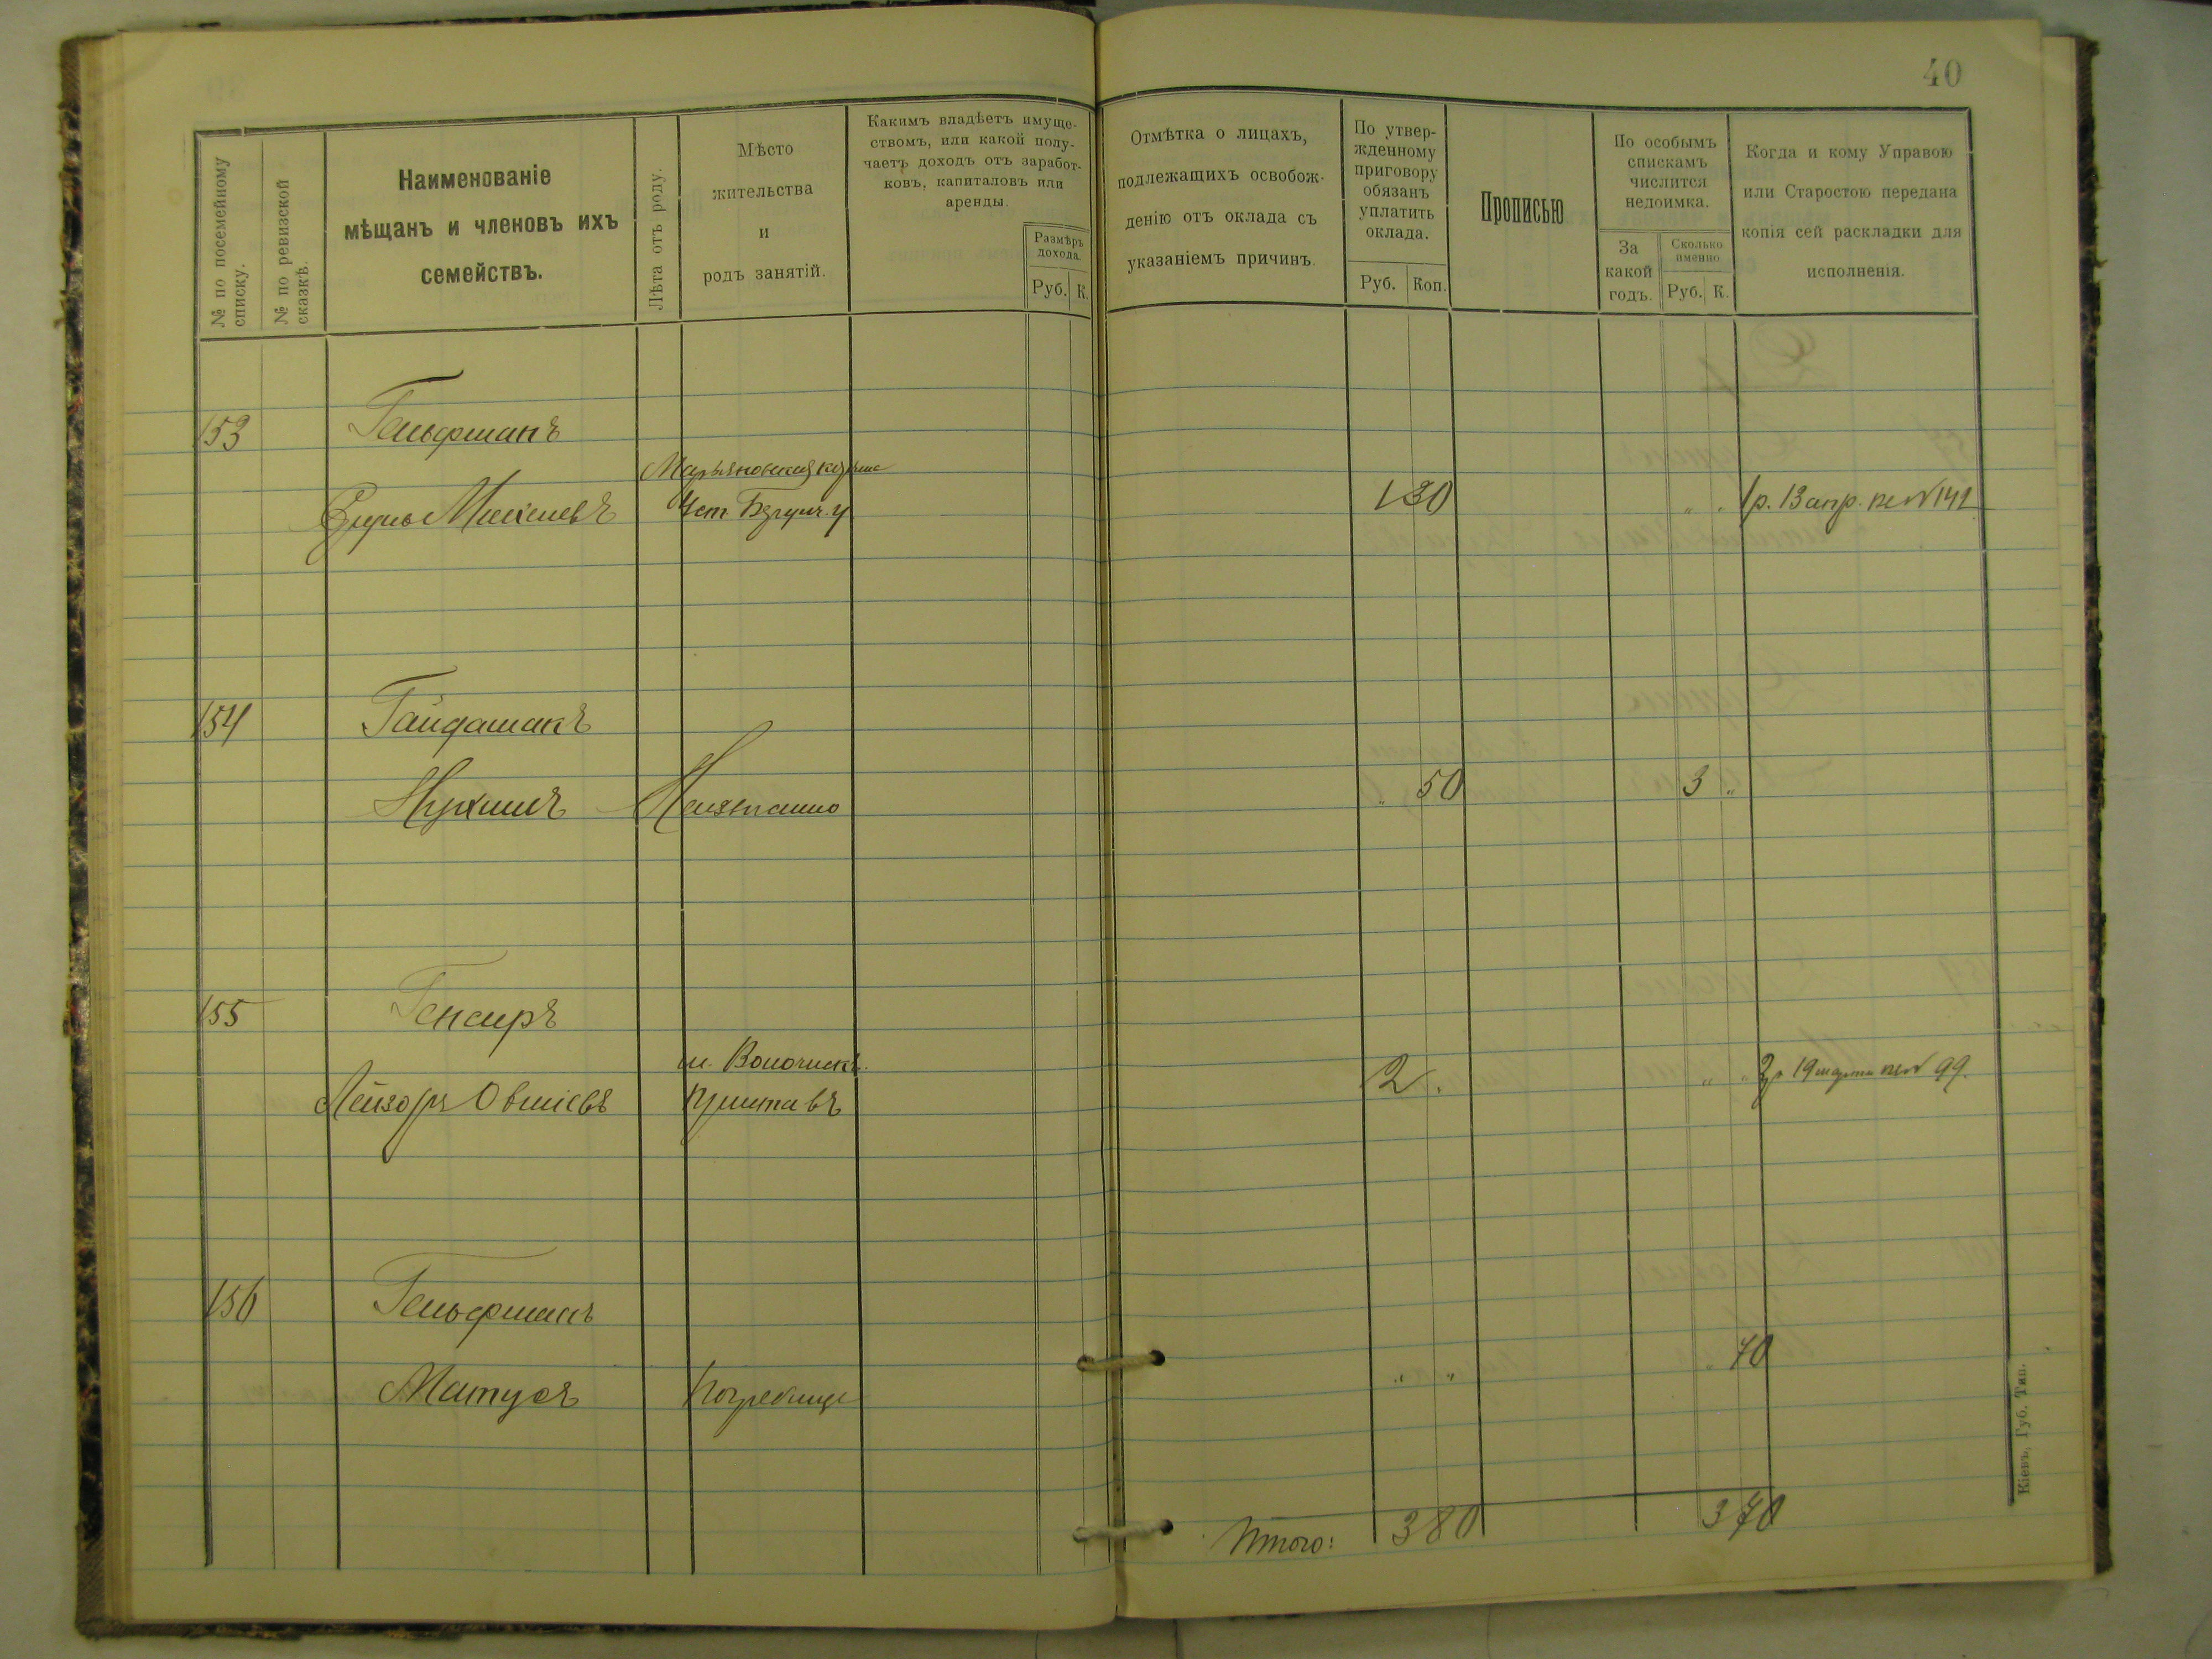 40
№ по посемейному списку.
№ по ревизской сказкѣ.
Наименованіе
мѣщанъ и членовъ ихъ
семействъ.
Лѣта отъ роду.
Мѣсто
жительства
и
родъ занятій.
Какимъ владѣетъ имуще-
ствомъ, или какой полу-
чаетъ доходъ отъ заработ-
ковъ, капиталовъ или
аренды.
Размѣръ
дохода.
Руб. К.
Отмѣтка о лицахъ,
подлежащихъ освобож-
денію отъ оклада съ
указаніемъ причинъ.
По утвер-
жденному
приговору
обязанъ
уплатить
оклада.
Руб. Коп.
Прописью
По особымъ
спискамъ
числится
недоимка.
За
какой
годъ.
Сколько
именно
Руб. К.
Когда и кому Управою
или Старостою передана
копія сей раскладки для
исполненія.
153 Гельфманъ
Марьяновская
1 30 " " 1 р. 13 апр. № 142
154 Гайдамакъ
Нухимъ Неизвестно " 50 3 "
155 Генсиръ
м. Волочискъ.
Лейзоръ Овшіевъ Приставъ 2 . " " 2 р 19 марта № 99.
156 Гельфманъ
Матусъ Погребище " " " 70
Итого: 3 80 3 70
Кіевъ, Губ. Тип.